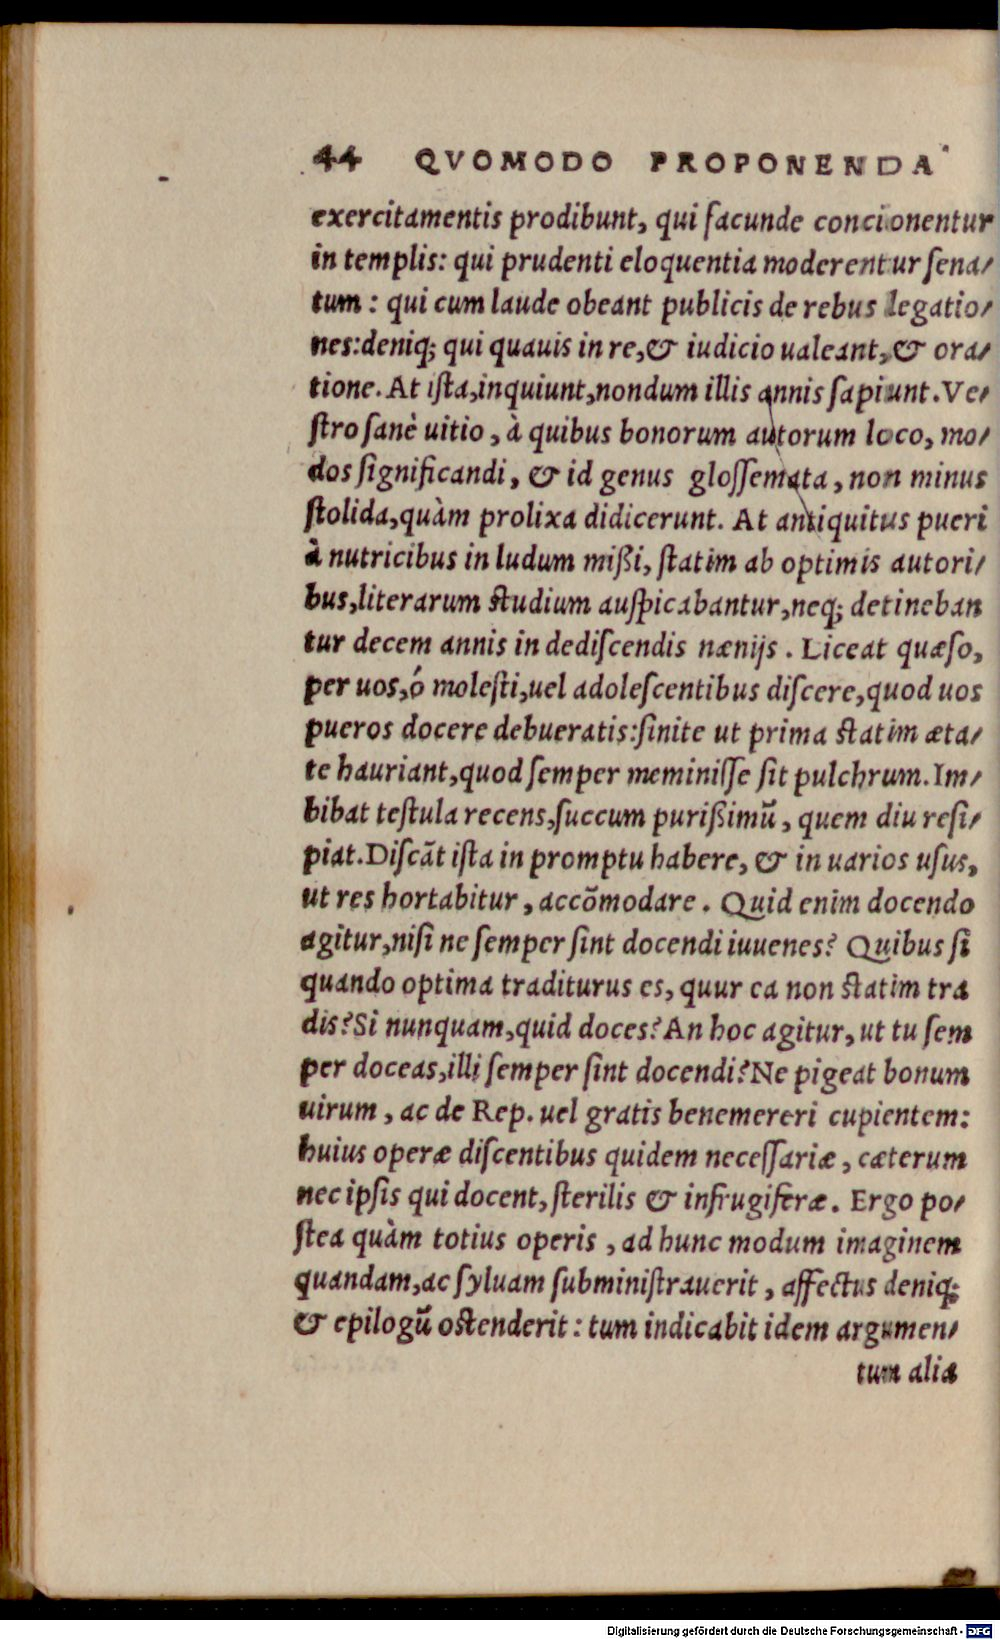 44 QVOMODO PROPONENDA
exercitamentis prodibunt, qui facunde concionentur
in templis: qui prudenti eloquentia moderentur ſena⸗
tum : qui cum laude obeant publicis de rebus legatio⸗
nes:deniq; qui quauis in re,& iudicio ualeant,& ora⸗
tione. At iſta,inquiunt,nondum illis annis ſapiunt.Ve⸗
ſtro ſanè uitio , à quibus bonorum autorum loco, mo⸗
dos ſignificandi, & id genus gloſſemata, non minus
ſtolida,quàm prolixa didicerunt. At antiquitus pueri
à nutricibus in ludum mißi, ſtatim ab optimis autori⸗
bus,literarum ſtudium auſpicabantur,neq; detineban
tur decem annis in dediſcendis nænijs . Liceat quæſo,
per uos,ó moleſti,uel adoleſcentibus diſcere,quod uos
pueros docere debueratis:ſinite ut prima ſtatim æta⸗
te hauriant,quod ſemper meminiſſe ſit pulchrum.Im⸗
bibat teſtula recens,ſuccum purißimū, quem diu reſi⸗
piat.Diſcāt iſta in promptu habere, & in uarios uſus,
ut res hortabitur, accōmodare . Quid enim docendo
agitur,niſi ne ſemper ſint docendi iuuenes? Quibus ſi
quando optima traditurus es, quur ea non ſtatim tra
dis?Si nunquam,quid doces?An hoc agitur,ut tu ſem
per doceas,illi ſemper ſint docendi?Ne pigeat bonum
uirum , ac de Rep. uel gratis benemereri cupientem:
huius operæ diſcentibus quidem neceſſariæ , cæterum
nec ipſis qui docent, ſterilis & infrugiferæ . Ergo po⸗
ſtea quàm totius operis , ad hunc modum imaginem
quandam,ac ſyluam ſubminiſtrauerit , affectus deniq;
& epilogū oſtenderit : tum indicabit idem argumen⸗
tum alia
Digitalisierung gefördert durch die Deutsche Forschungsgemeinschaft - DFG